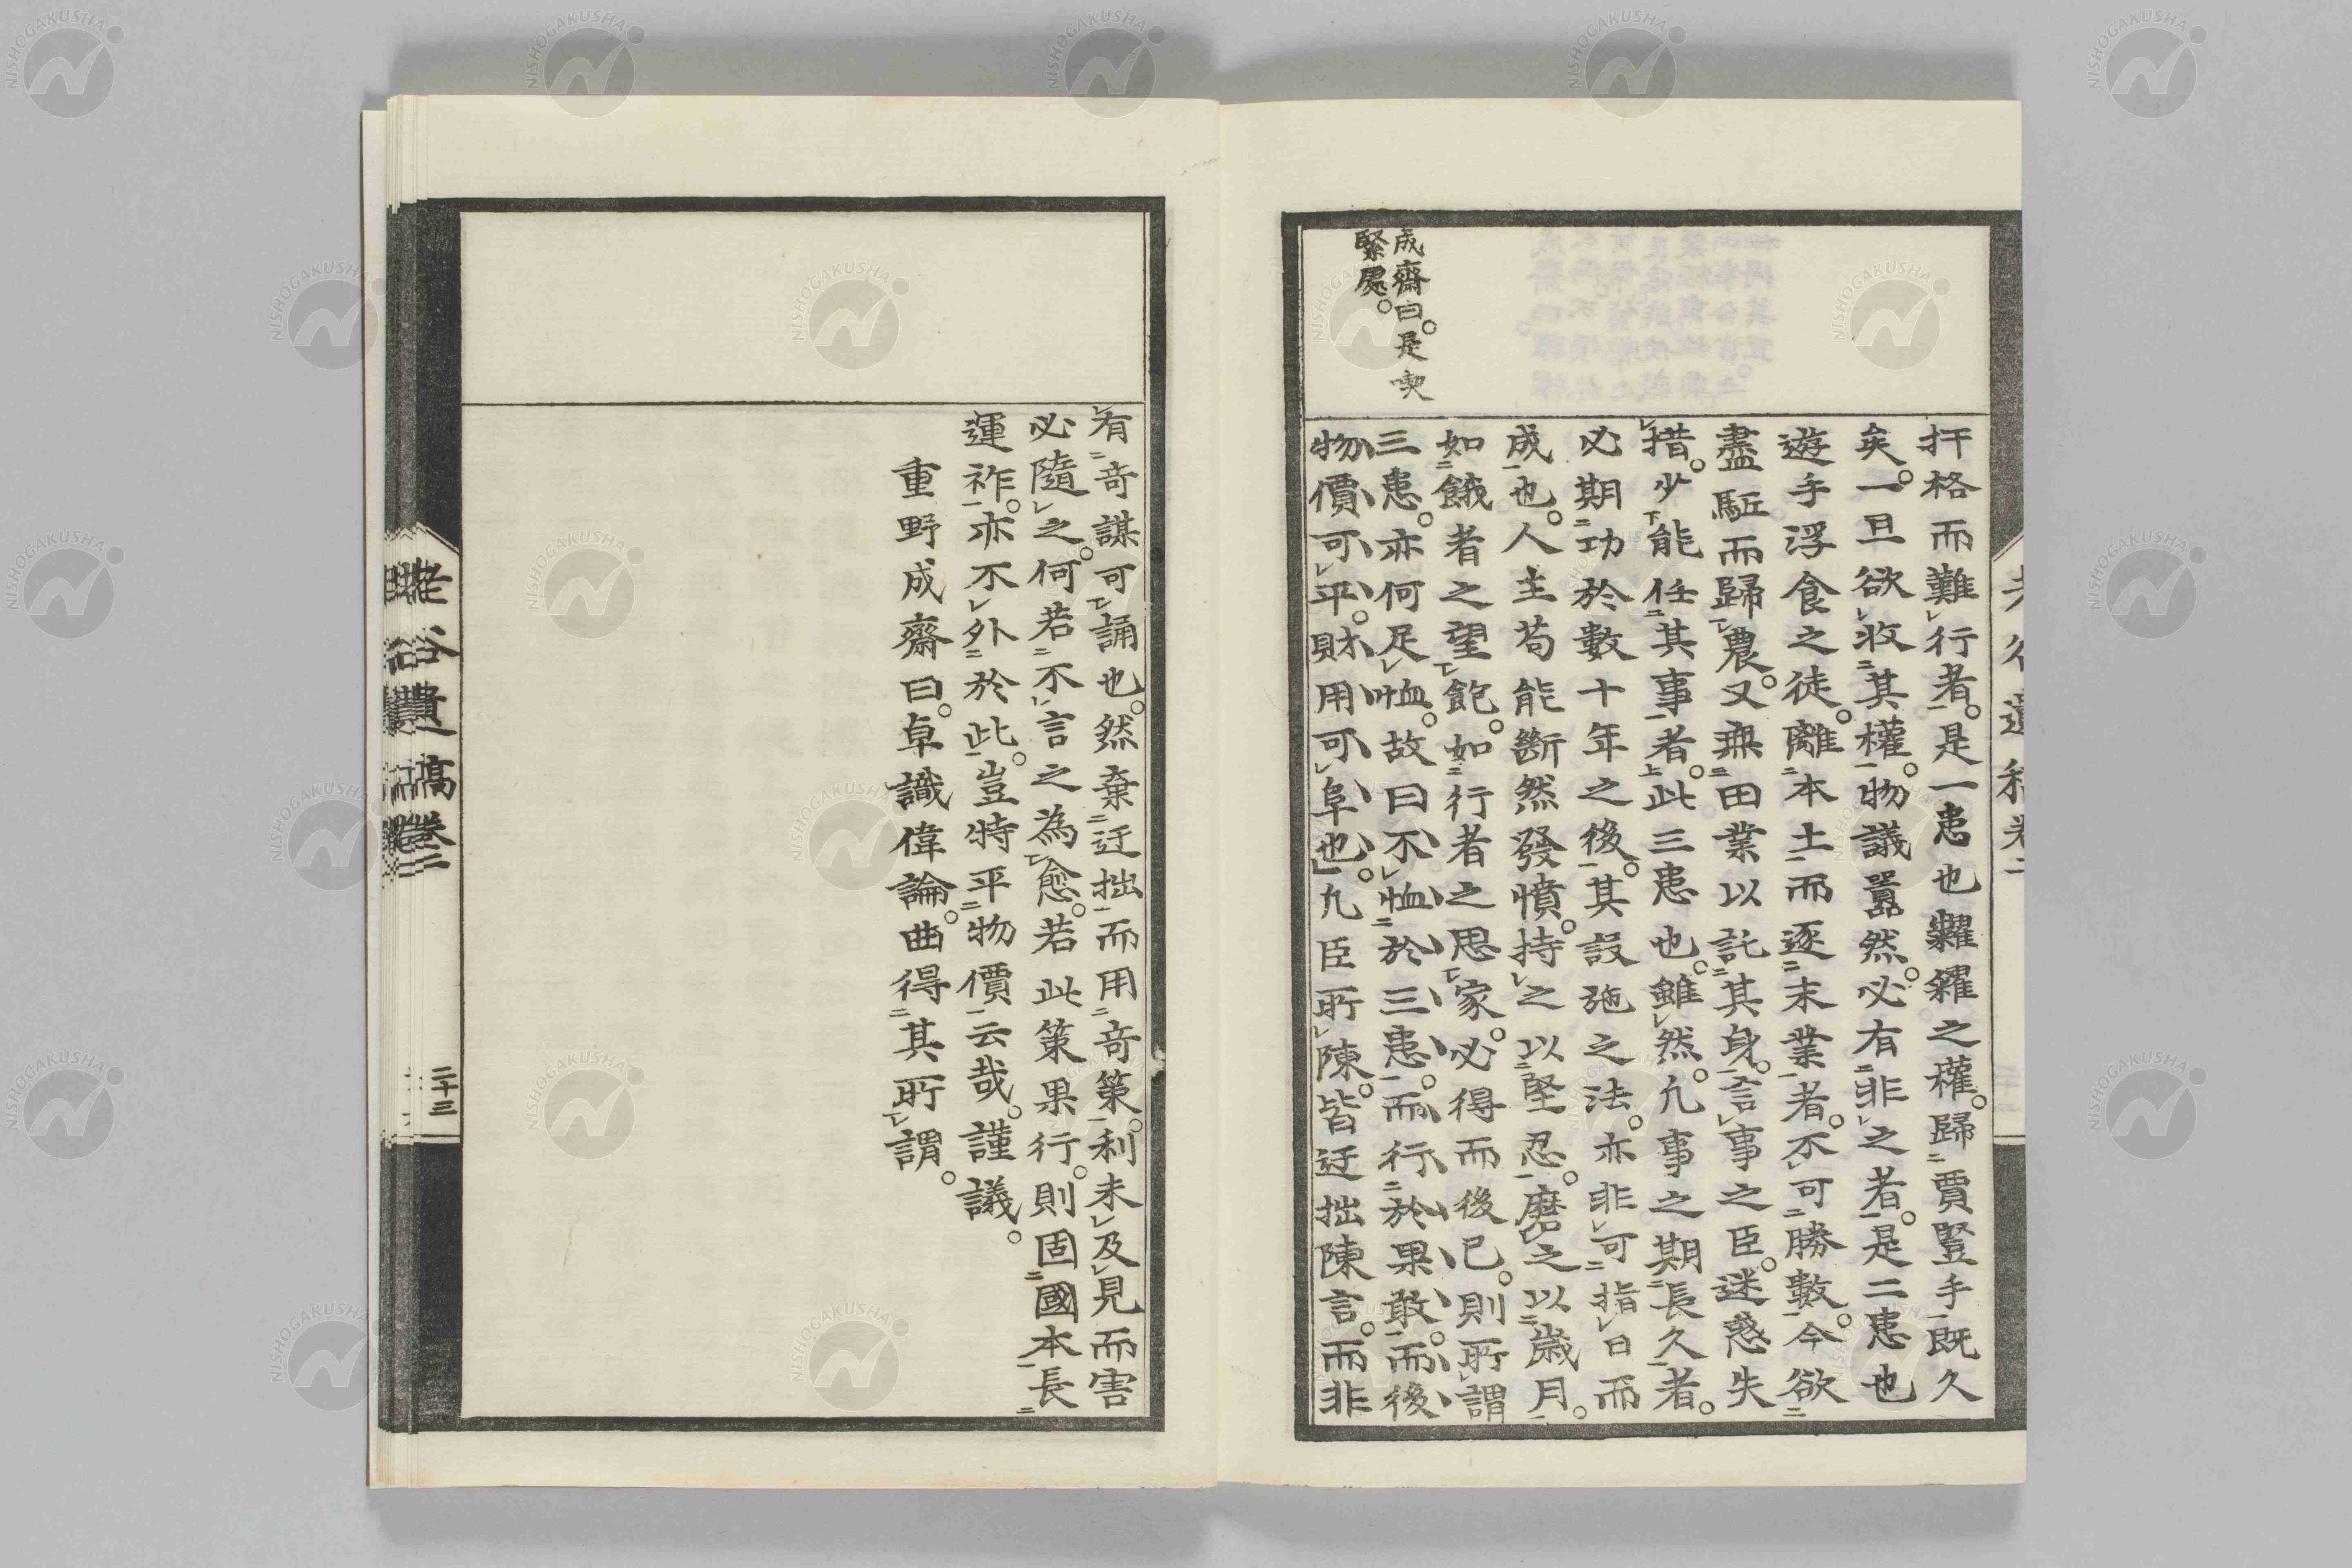 成齋曰。是喫
緊處。
扞格而難行者。是一患也糶糴之權。歸賈豎手既久
矣。一旦欲收其權。物議囂然。必有非之者。是二患也
遊手浮食之徒。離本土而逐末業者。不可勝數。今欲
盡駈而歸農。又無田業以託其身。言事之臣。迷惑失
措。少能任其事者。此三患也。雖然。凢事之期長久者。
必期功於數十年之後。其設施之法。亦非可指日而
成也。人主苟能斷然發憤。持之以堅忍。磨之以歲月。
如餓者之望飽。如行者之思家。必得而後已。則所謂
三患。亦何足恤。故曰不恤於三患。而行於果敢。而後
物價可平。財用可阜也。凢臣所陳。皆迂拙陳言。而非
有奇謀可誦也。然棄迂拙而用奇策。利未及見而害
必隨之。何若不言之為愈。若此策果行。則固國本長
運祚。亦不外於此。豈特平物價云哉。謹議。
重野成齋曰。卓識偉論。曲得其所謂。
老谷遺稿卷二
二十三